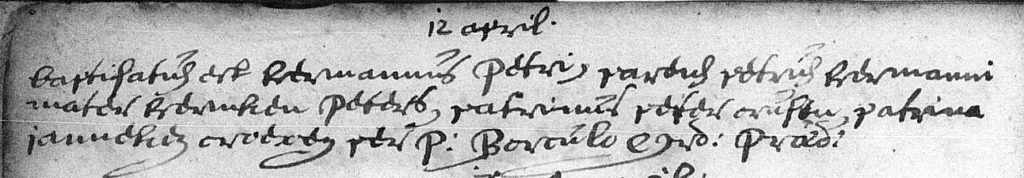 12 april.
baptisatus est hermannus Petri, parens petrus hermanni
mater hermken Peters, patrinus peter crusen, patrina
janneken croexen per P: Borculo Ord: Præd: